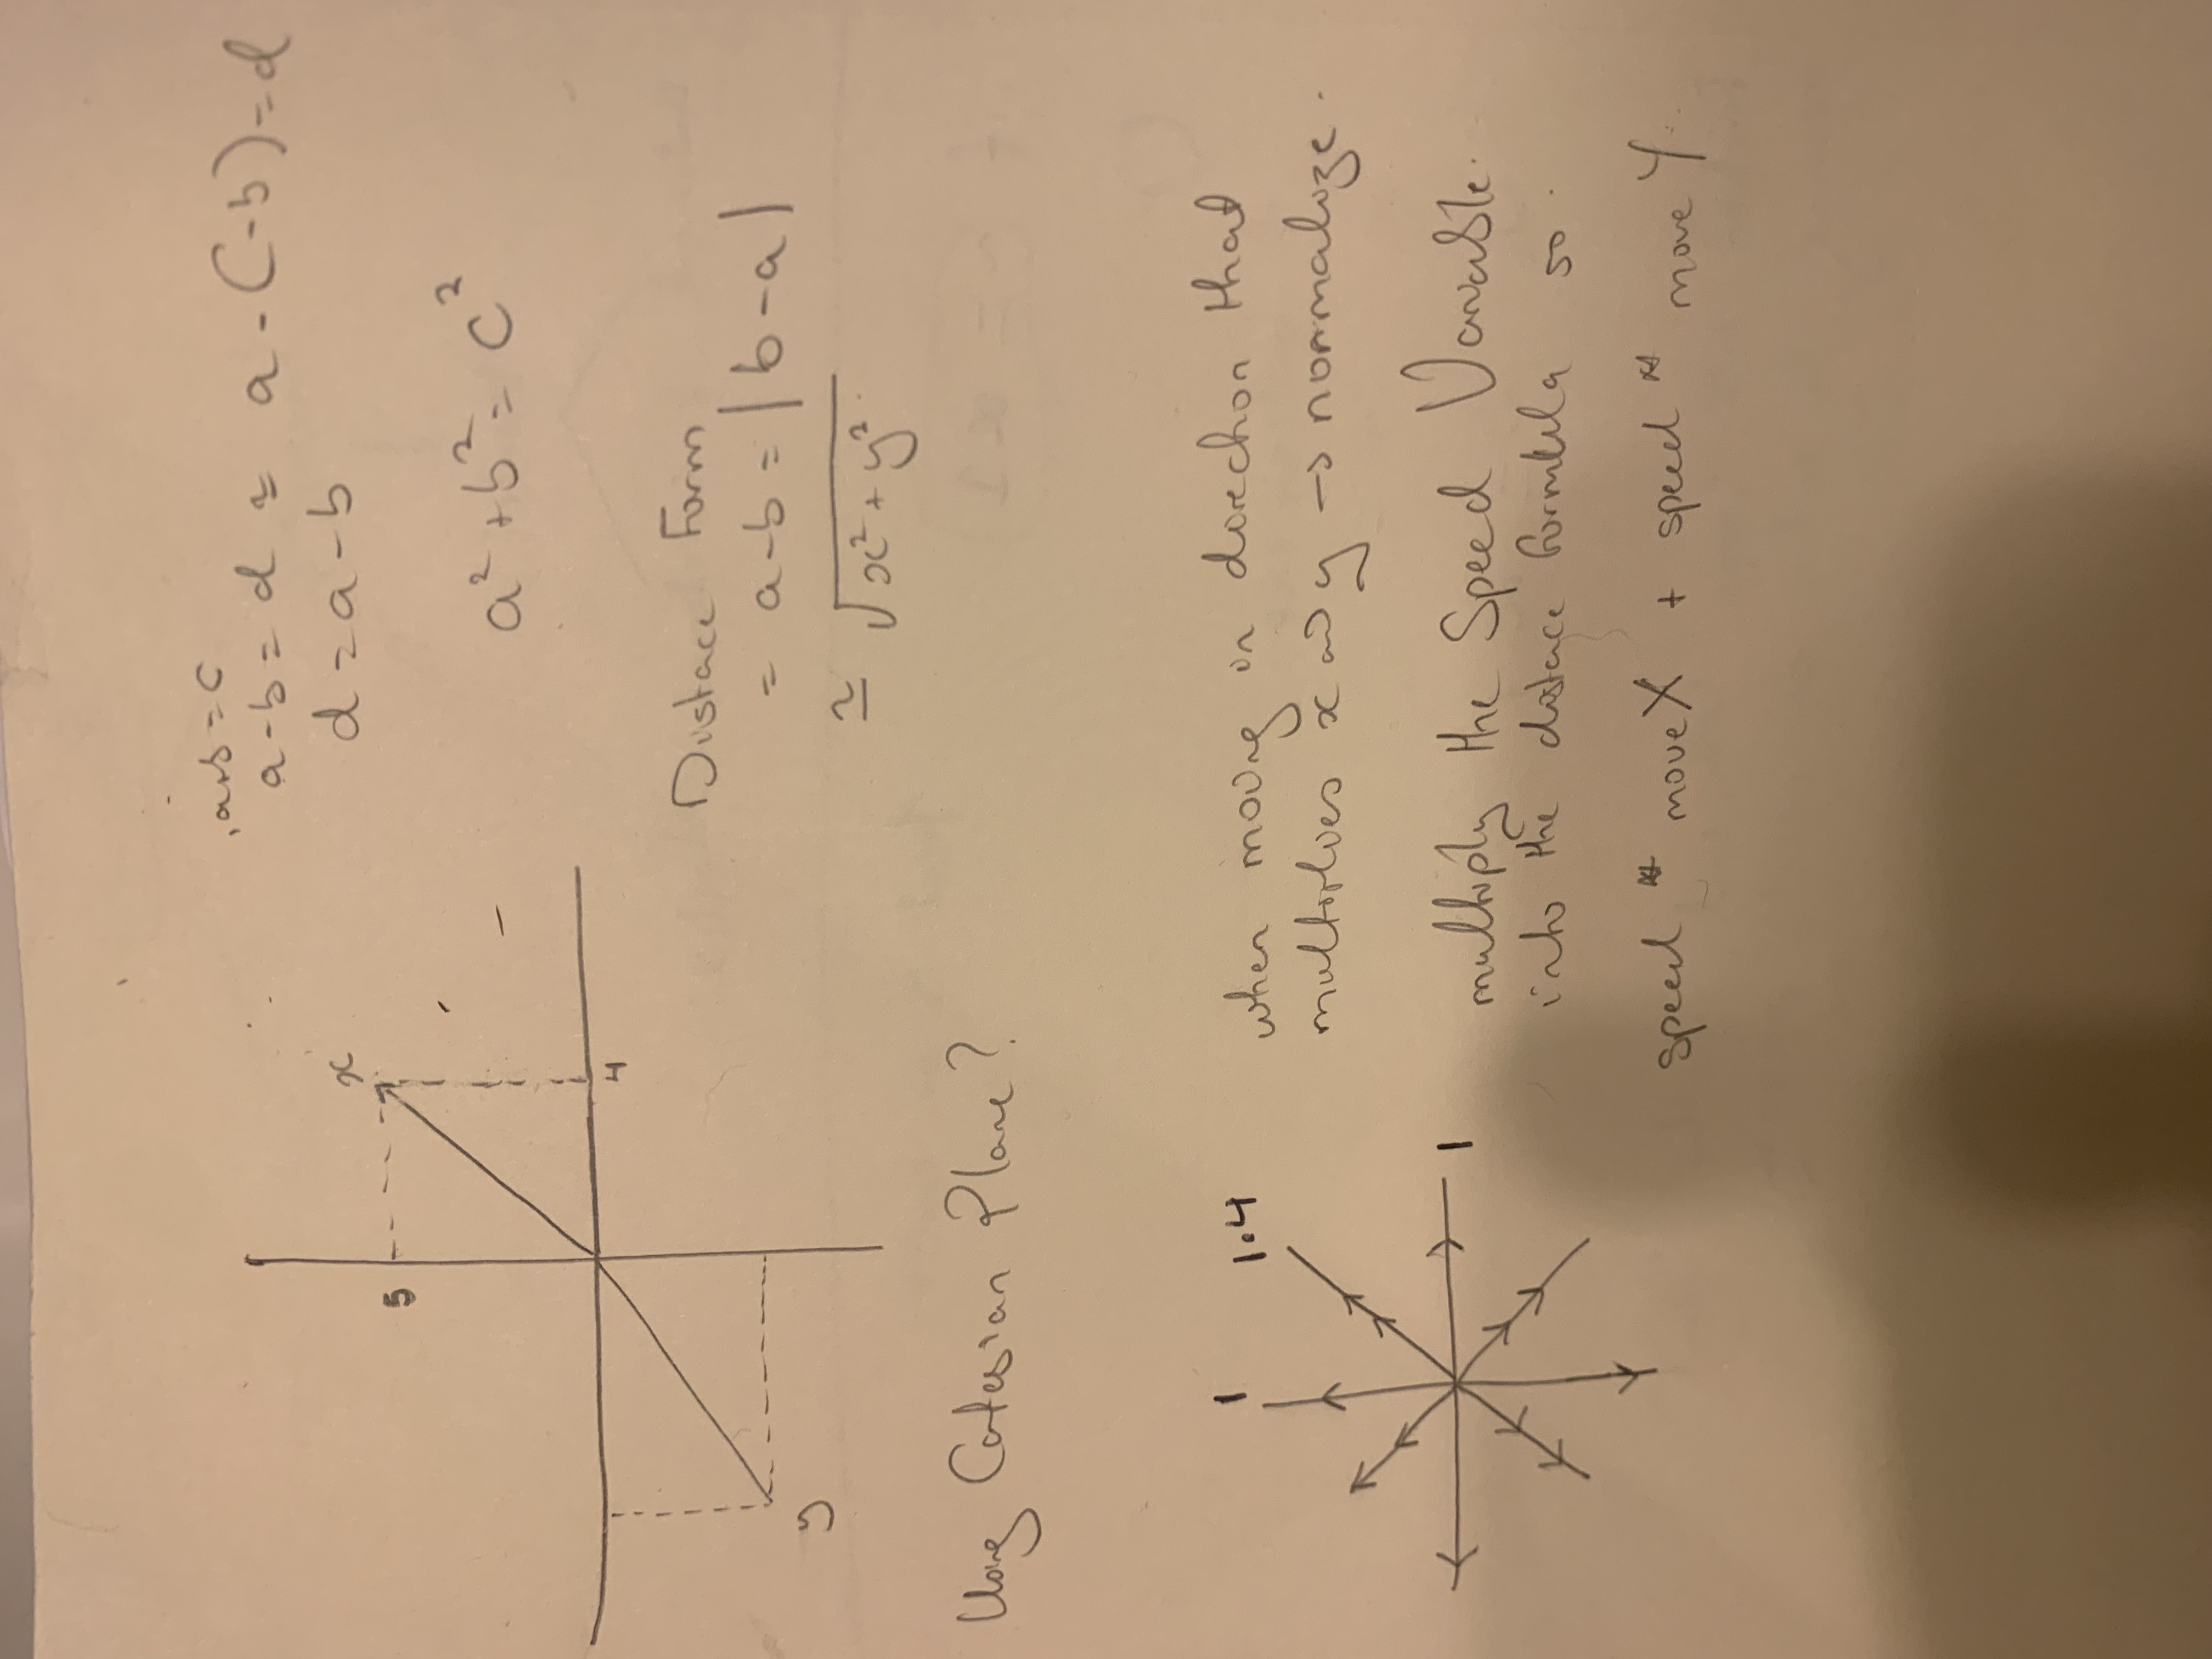 a+b = c
a - b = d ≃ a - (-b) = d
d = a - b
x
5
a² + b² = c²
4
Distace Form
= a - b = |b - a|
y
≃ √x² + y²
Using Catesian Plane?
1
1.4
when moving in direction that
multiplies x and y → normalize.
1
multiply the Speed Variable
into the distace formula so
speed * moveX + speed * move Y